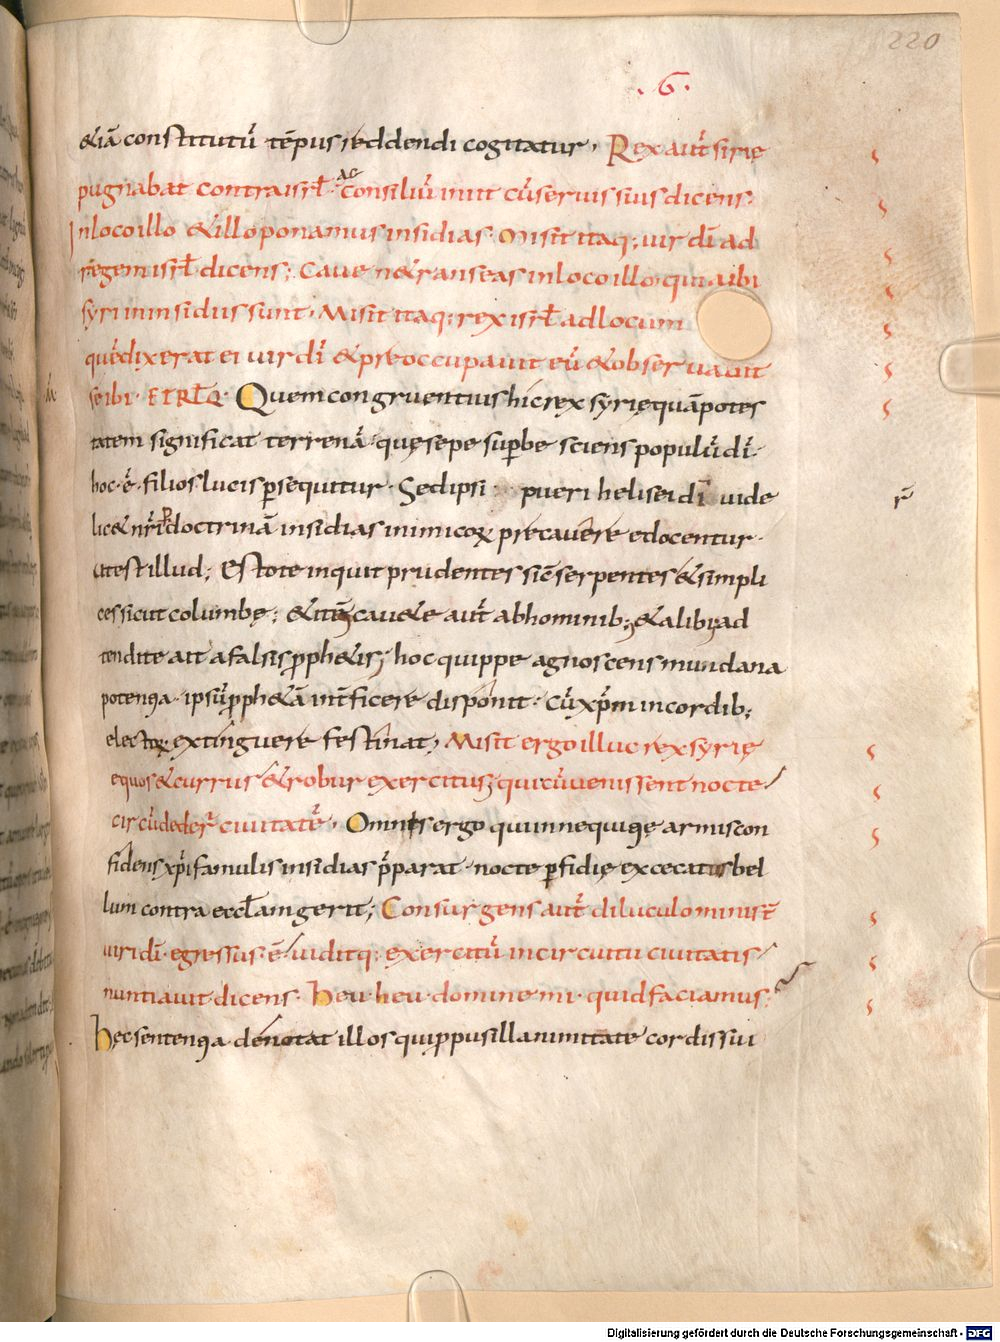 220
.6.
&iā constitutū tēpus reddendi cogitatur, Rex aut̄ sirię
pugnabat contra isrł. ac consiliū iniit cū seruis suis dicens.
In loco illo & illo ponamus insidias. Misit itaq; uir dī ad
regem isrł dicens; Caue ne transeas in loco illo. quia ibi
syri in insidiis sunt. Misit itaq; rex isrł ad locum
quē dixerat ei uir dī & preoccupauit eū & obseruauit
se ibi. ET RŁQ. Quem congruentius hic rex syrię quā potes
tatem significat terrenā. quę sepe supbe sciens populū dī.
hoc .ē. filios lucis psequitur. Sed ipsi pueri helisei dī uide
lic& nrī doctrinā insidias inimicoꝝ precauere edocentur.
ut est illud; Estote inquit prudentes sic̄ serpentes & simpli
ces sicut columbę; & itē cau&e aut̄ ab hominib; & alibi ad
tendite ait a falsis pph&is; hoc quippe agnoscens mundana
potentia. ipsū pph&ā int̄ficere disponit. cū xp̄m in cordib;
electoꝝ extinguere festinat, Misit ergo illuc rex syrię
equos & currus & robur exercitus; qui cū uenissent nocte
circūdeder̄ ciuitatē. Omnis ergo qui in nequitię armis con
fidens xpī famulis insidias p̄parat. nocte pfidię excecatus bel
lum contra eccłam gerit; Consurgens aut̄ diluculo minist̄
uiri dī. egressus .ē. uiditq; exercitū in circuitu ciuitatis
nuntiauit dicens. Heu heu domine mi. quid faciamus;
Hęc sententia denotat illos qui p pusillanimitate cordis sui
Digitalisierung gefördert durch die Deutsche Forschungsgemeinschaft - DFG